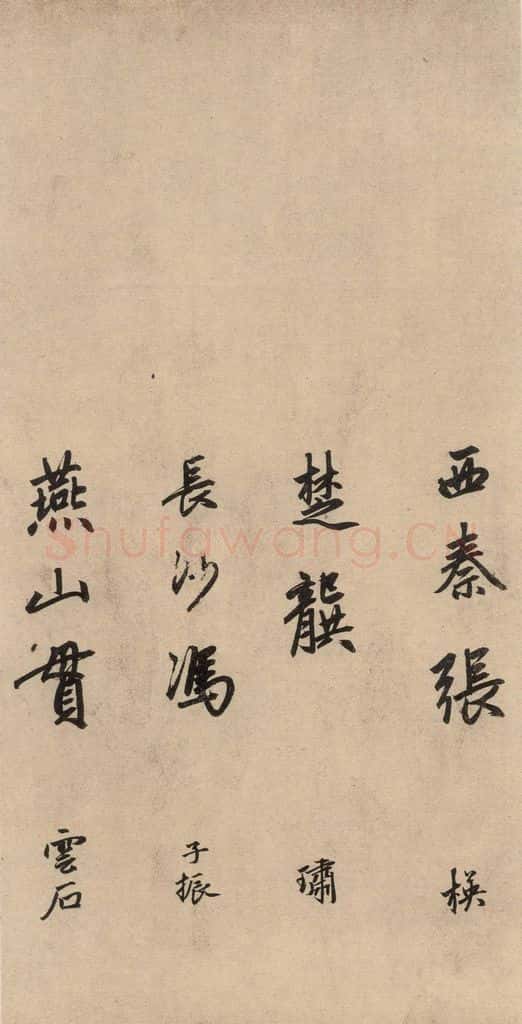 西秦張 楧
楚龔 璛
長沙馮 子振
燕山貫 雲石
shufawang.CN